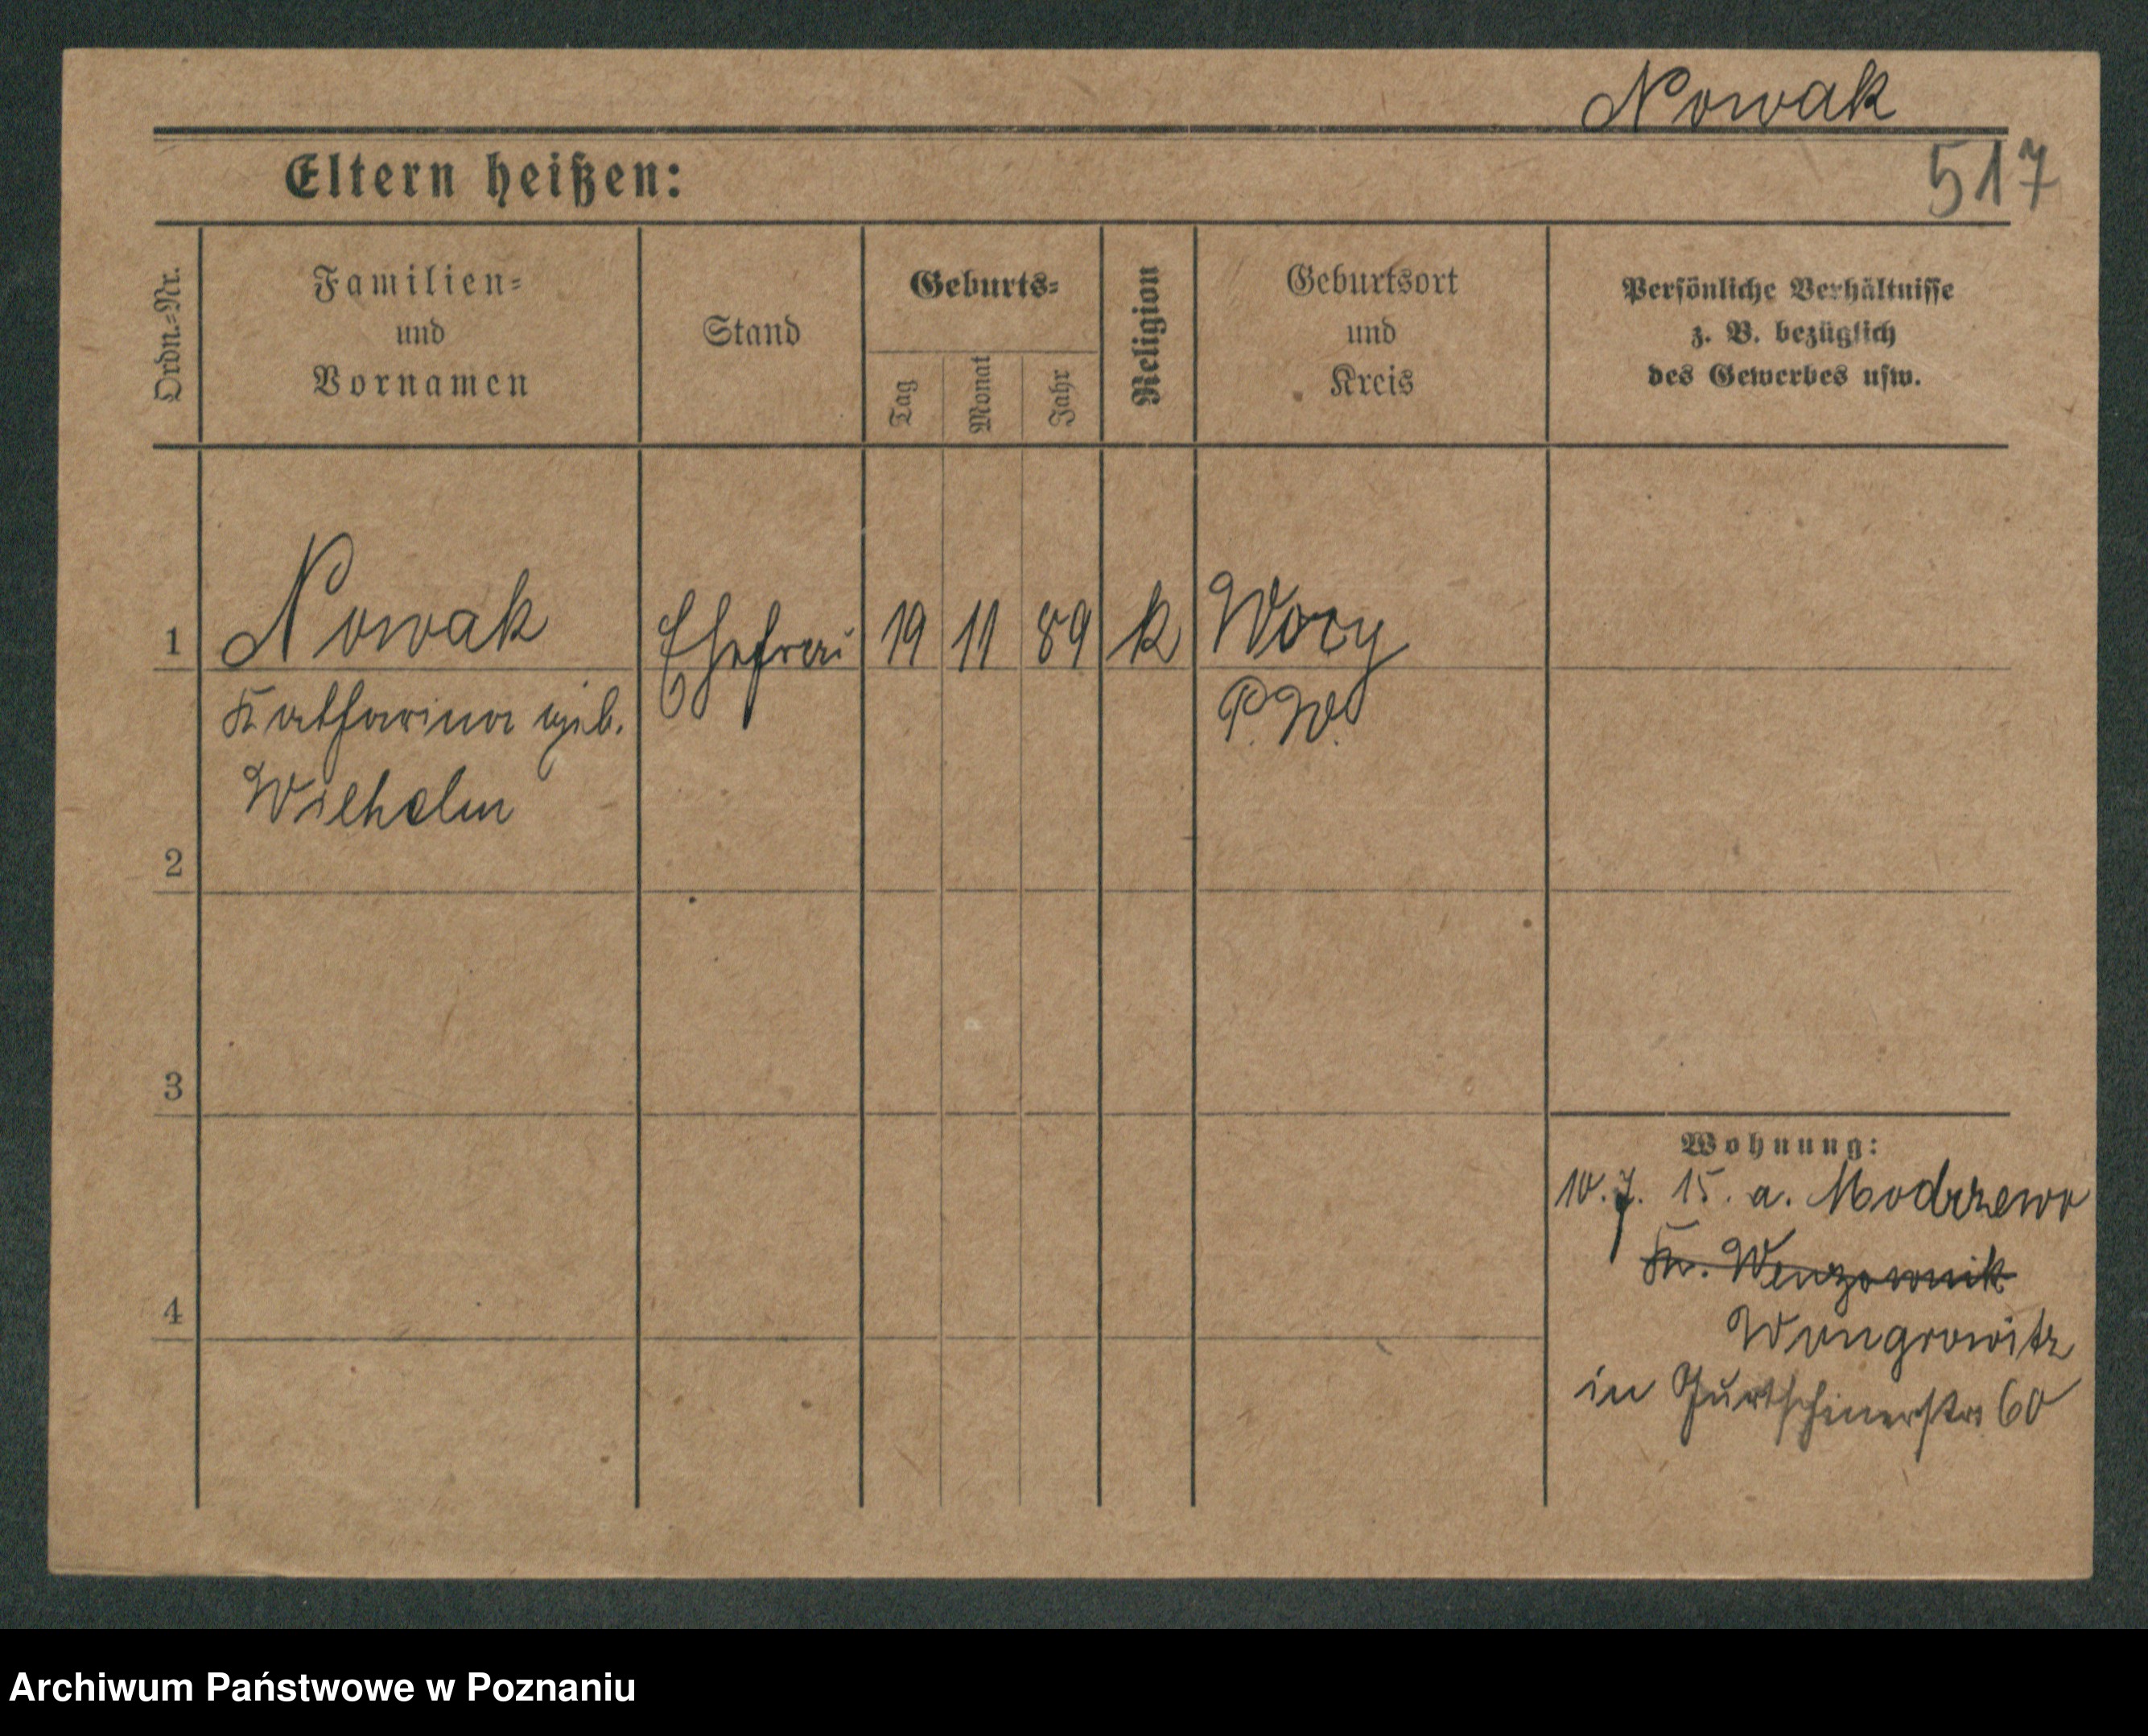 Nowak
Eltern heißen:
517
Ordn.-Nr.
Familien-
und
Vornamen
Stand
Geburts-
Tag
Monat
Jahr
Religion
Geburtsort
und
Kreis
Persönliche Verhältnisse
z. B. bezüglich
des Gewerbes usw.
1
Nowak
Ehefrau
19
11
89
k
Katharina geb.
P. W.
Wilhelm
2
3
Wohnung:
10. 7. 15. a. Modrzewo
Kr.
4
Wongrowitz
in Gurtschinerstr 60
Archiwum Państwowe w Poznaniu